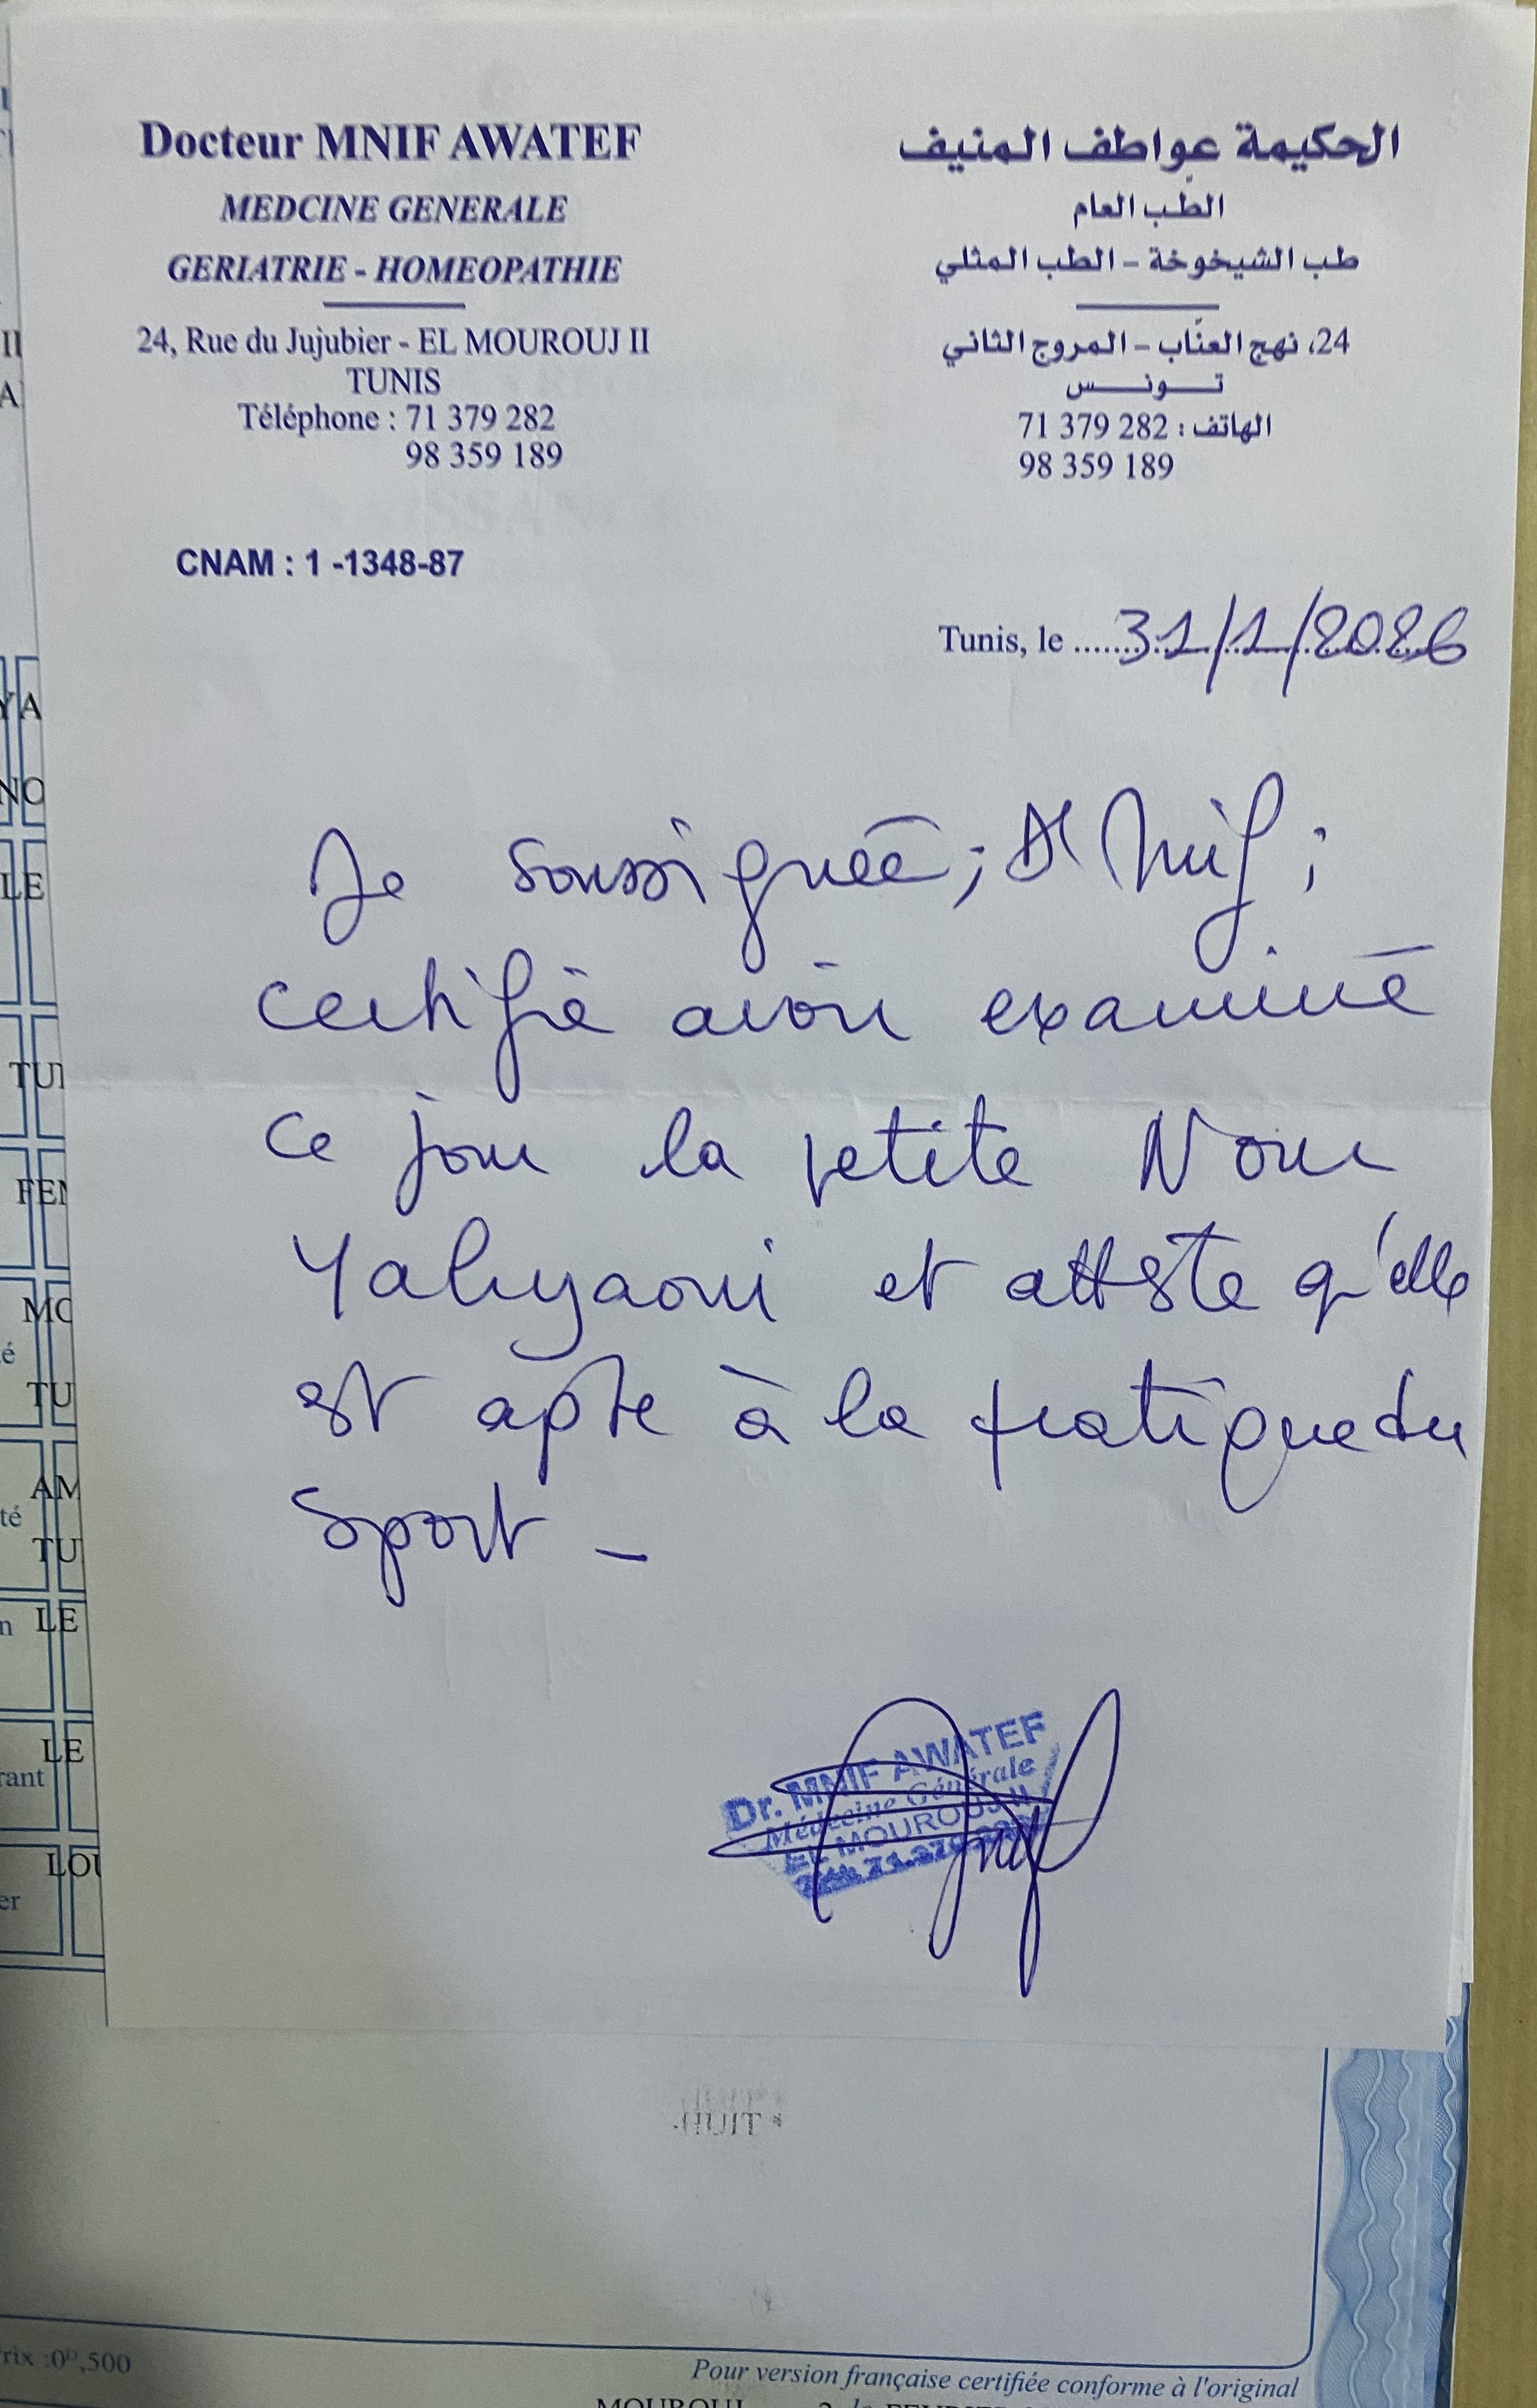 Docteur MNIF AWATEF
MEDCINE GENERALE
GERIATRIE - HOMEOPATHIE
24, Rue du Jujubier - EL MOUROUJ II
TUNIS
Téléphone : 71 379 282
98 359 189
CNAM : 1 -1348-87
الحكيمة عواطف المنيف
الطب العام
طب الشيخوخة - الطب المثلي
24، نهج العنّاب - المروج الثاني
تـونـس
الهاتف : 282 379 71
98 359 189
Tunis, le 31/1/2026
Je soussignée ; Dr Mnif ;
certifie avoir examiné
ce jour la petite Nour
Yahyaoui et atteste q'elle
est apte à la pratique du
sport -
Dr. MNIF AWATEF
Médecine Générale
EL MOUROUJ II
YA
NO
LE
TU
FE
MO
é
TU
AM
té
TU
n LE
LE
rant
LOU
er
rix :0D,500
Pour version française certifiée conforme à l'original